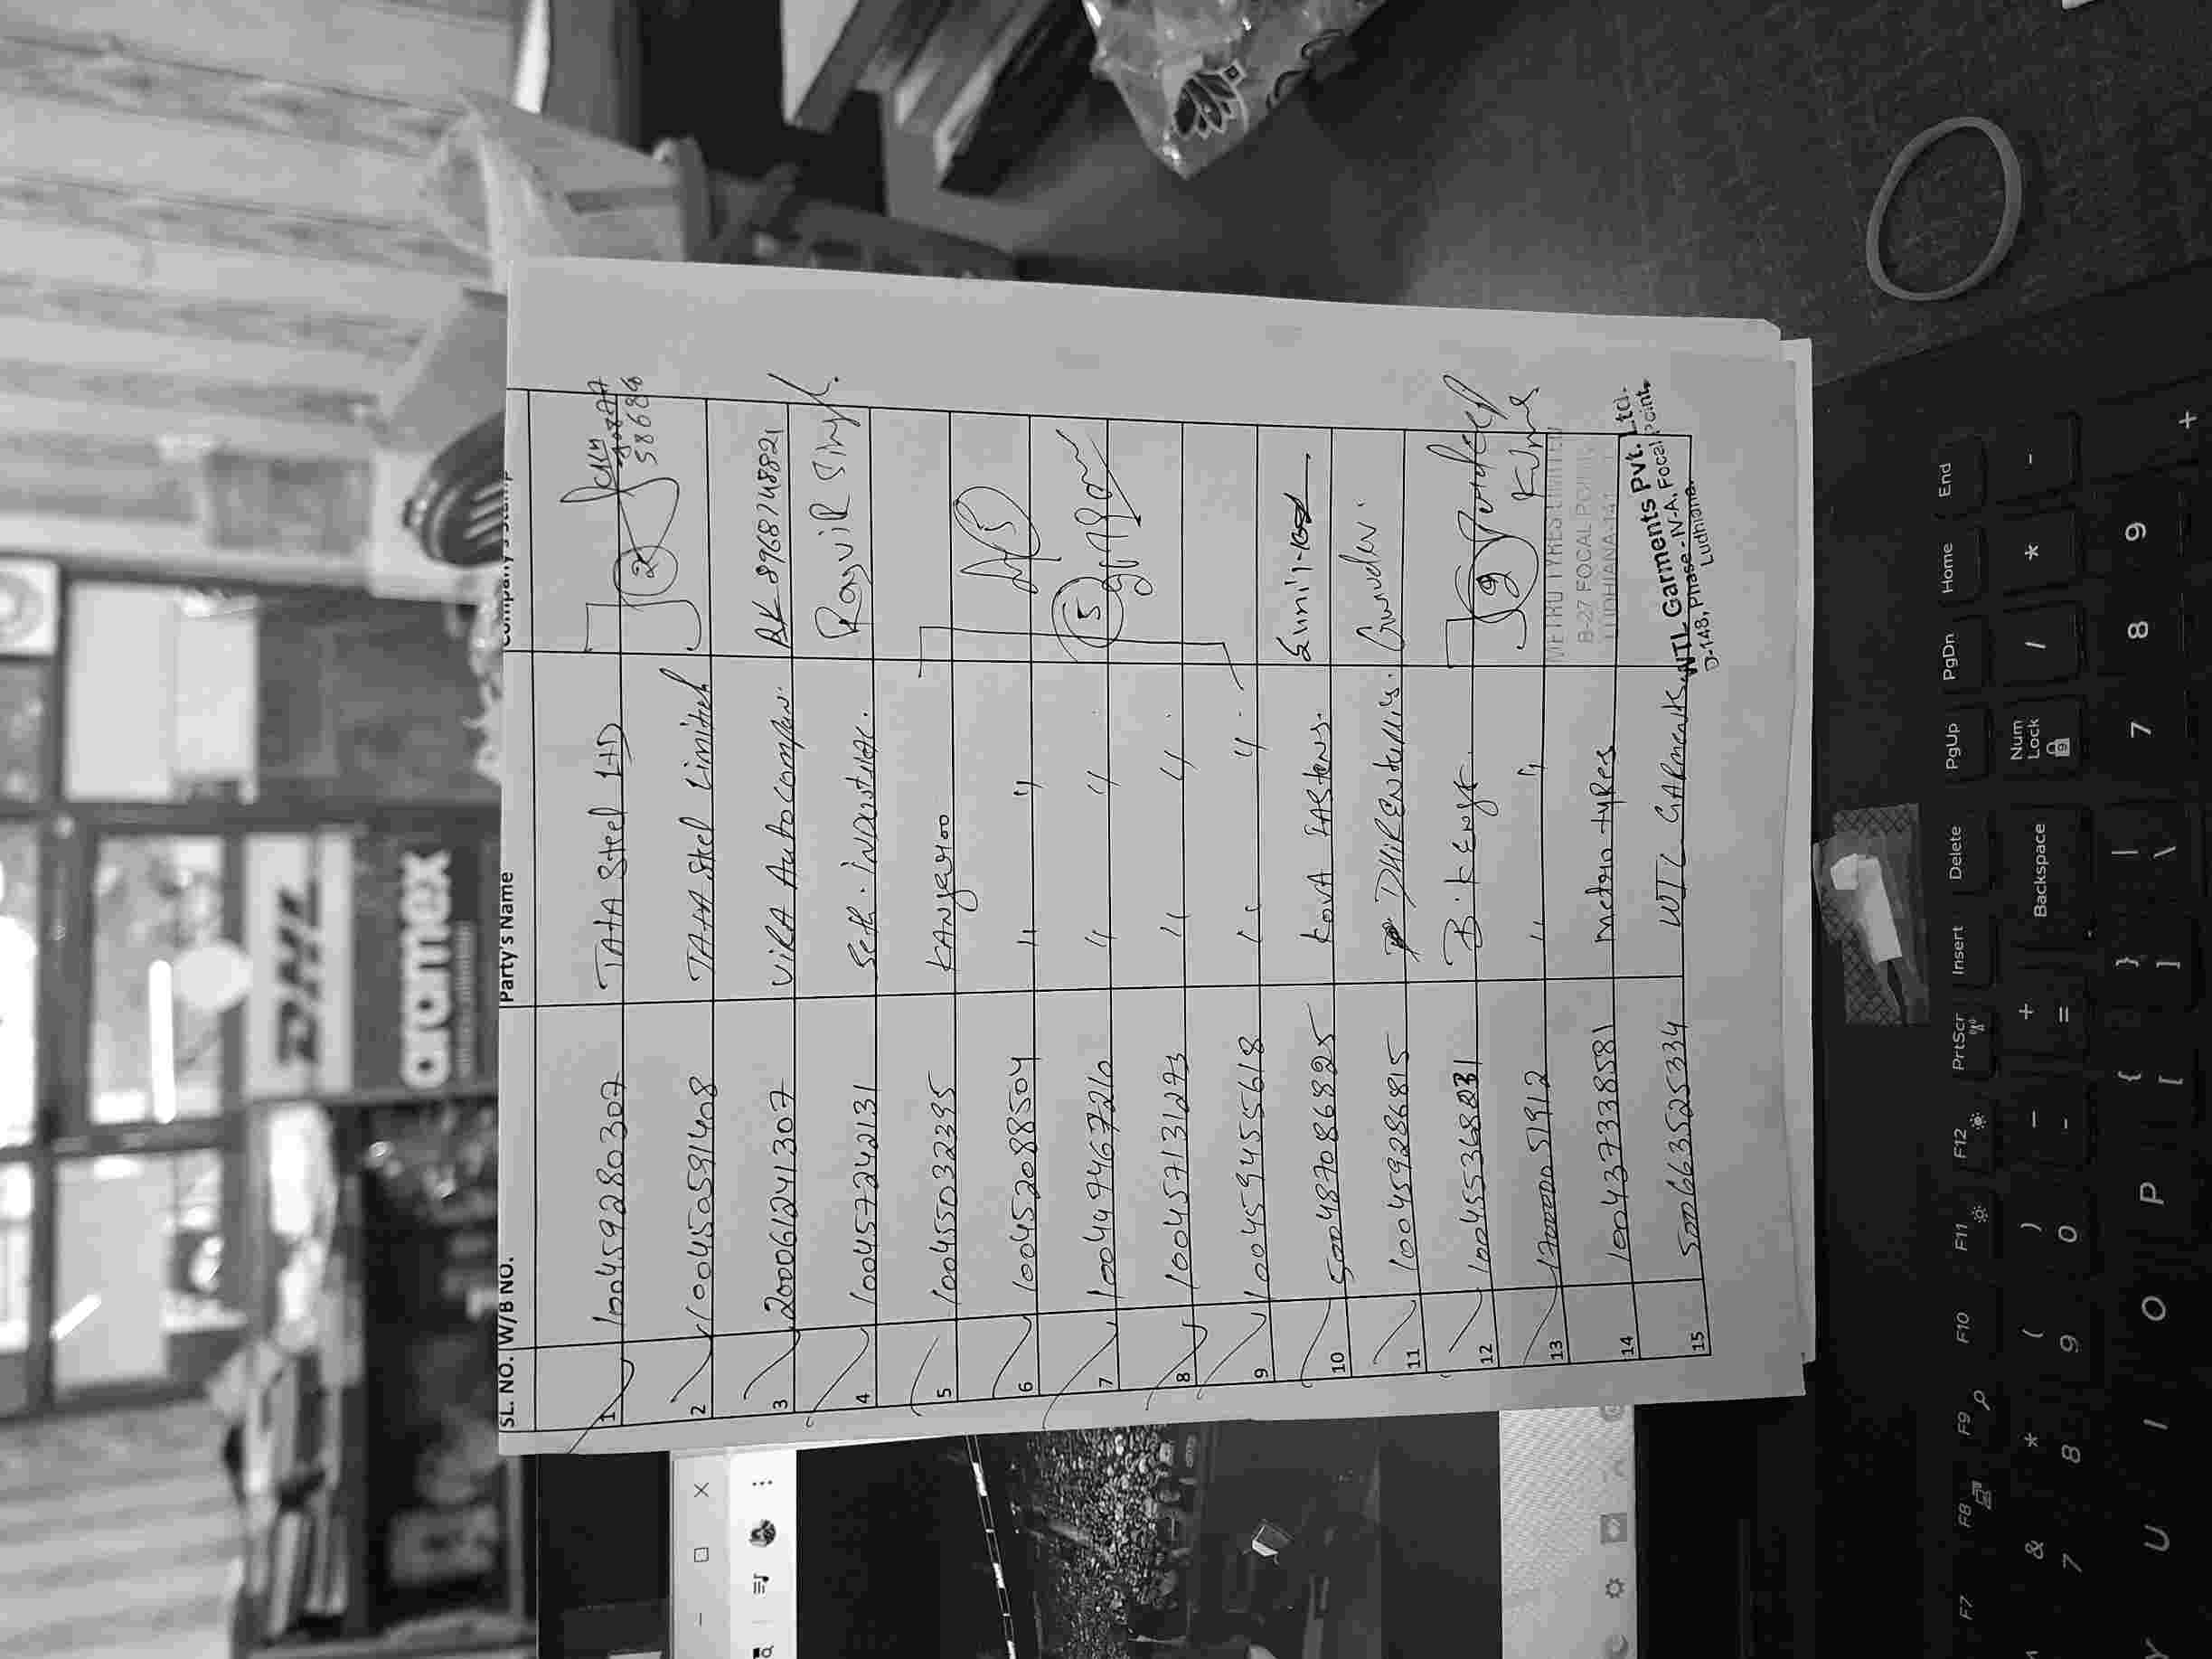 SL. NO. W/B NO. Party's Name Company's Stamp
1 100459280307 TATA Steel LtD
58686
2 100450591408 TATA Steel Limited
2
3 200061241307 ViRA Autocomplen. RK 8968748821
4 100457242131 Seth. industries. Ragvir Singh.
5 100455032395 KANgaroo
6 100452088504 " "
5
7 100449467210 " "
5
8 100457131273 " "
9 100459455618 " "
10 500487086825 KovA FASteNS. Sunil
11 100459286815 DHiR ENterprises.
12 100455368231 B.K Engg.
2
13 170000051912 " " Kumar
14 100437338581 Metro tyRes METRO TYRES LIMITED
B-27 FOCAL POINT
LUDHIANA-141
15 500663525334 WTL GARments WTL Garments Pvt. Ltd.
D-148, Phase-IV-A, Focal Point,
Ludhiana.
DHL
aramex
F7 F8 F9 F10 F11 F12 PrtScr Insert Delete PgUp PgDn Home End
& * ( ) _ + Backspace Num Lock / * -
7 8 9 0 - =
Y U I O P { [ } ] | \ 7 8 9 +